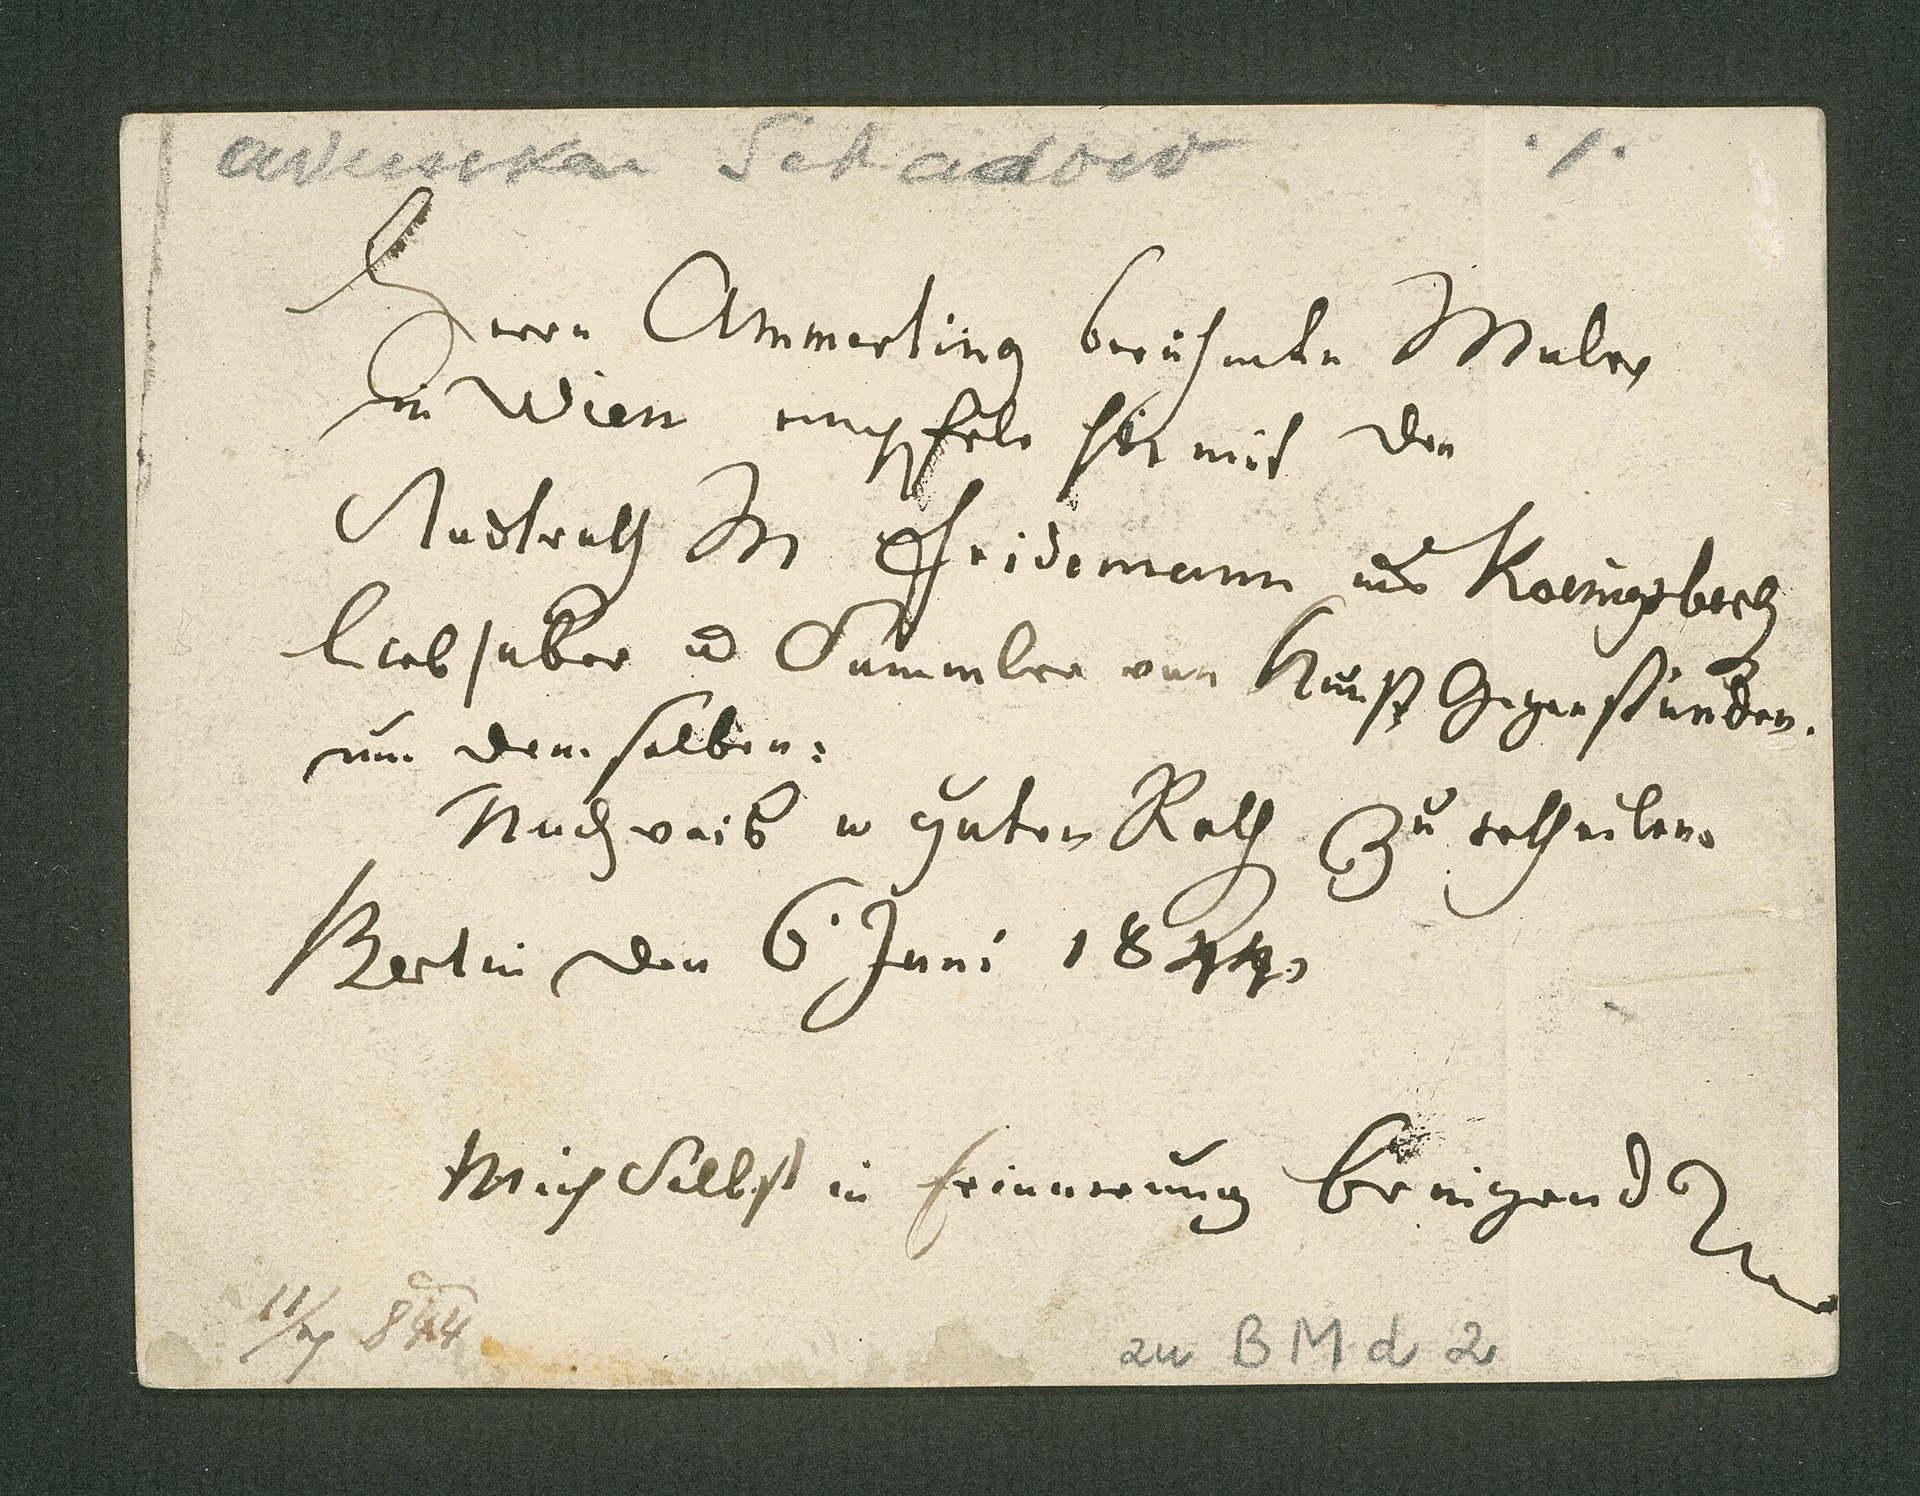 Schadow ./.
Herrn Ammerling berühmten Maler
in Wien empfele hiermit den
Stadtrath M Fridemann aus Koenigsberg
Liebhaber u Sammler von Kunst Gegenständen.
um demselben:
Nachweis u guten Rath Zu ertheilen.
Berlin den 6 Juni 1844.
Mich Selbst in Erinnerung bringend
11/7 844
zu B M d 2